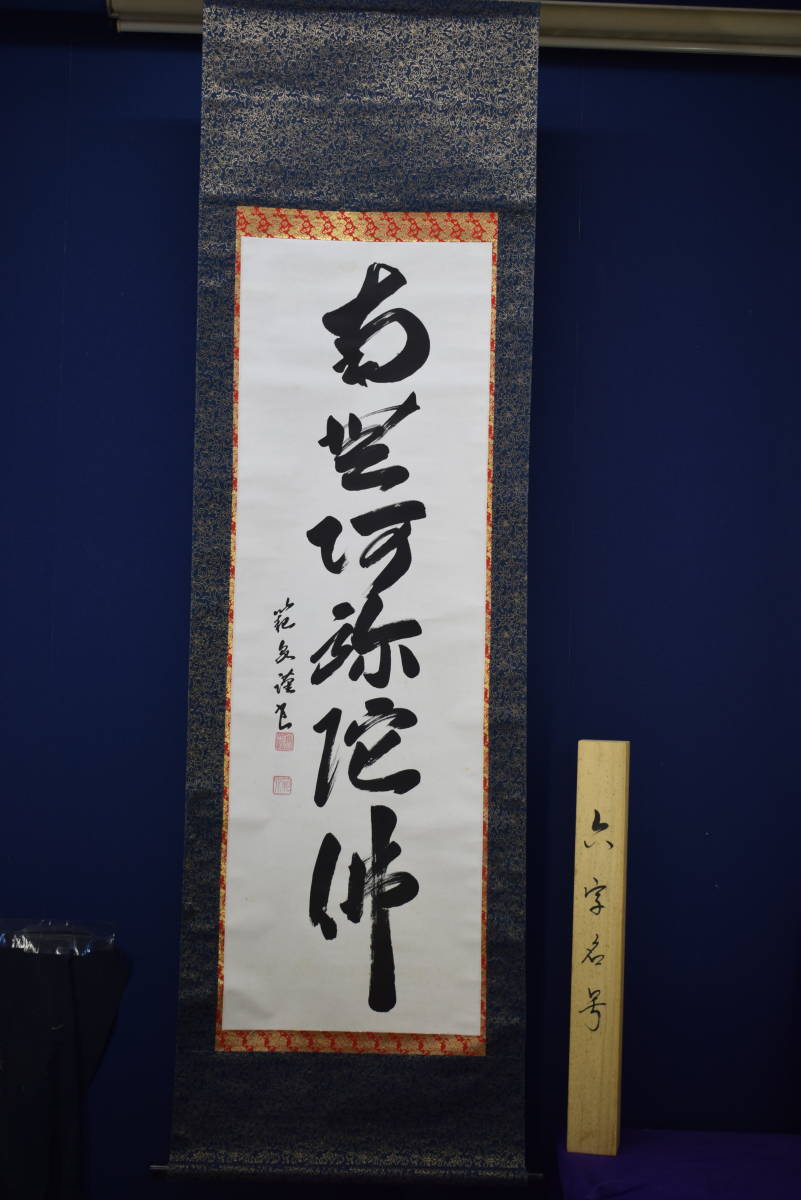 南無阿弥陀佛
範文謹書
六字名号